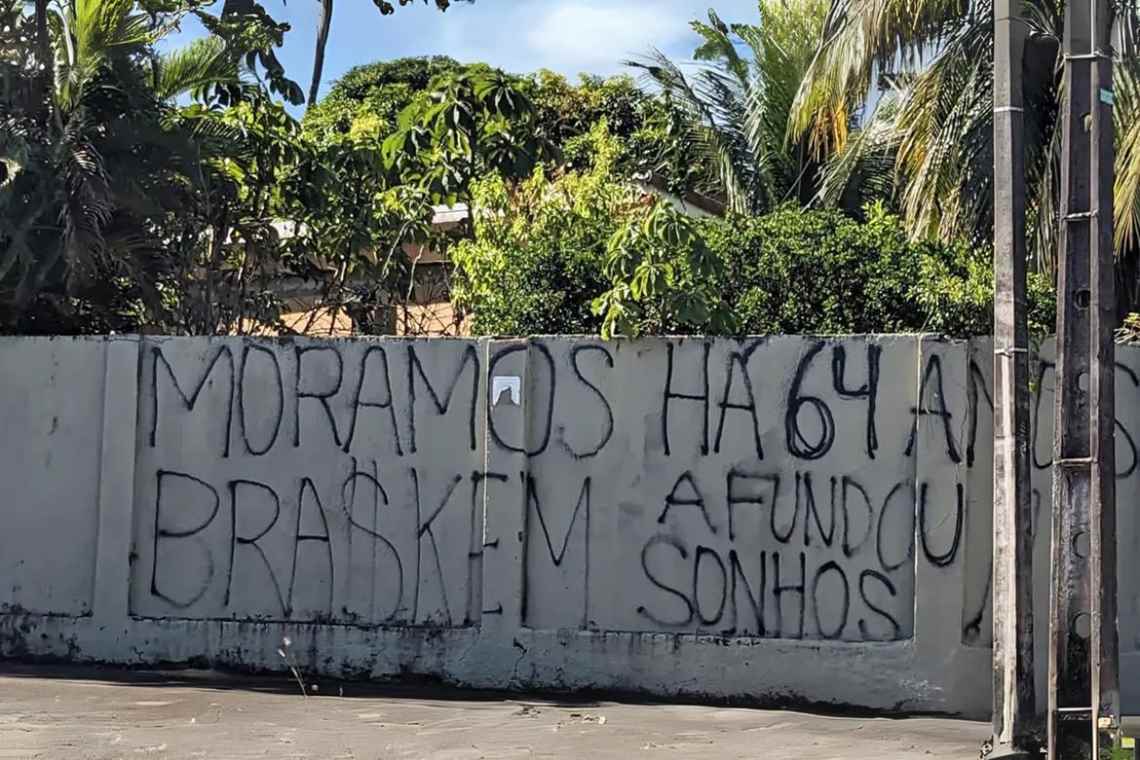 MORAMOS HÁ 64 ANOS
BRA$KEM AFUNDOU
SONHOS